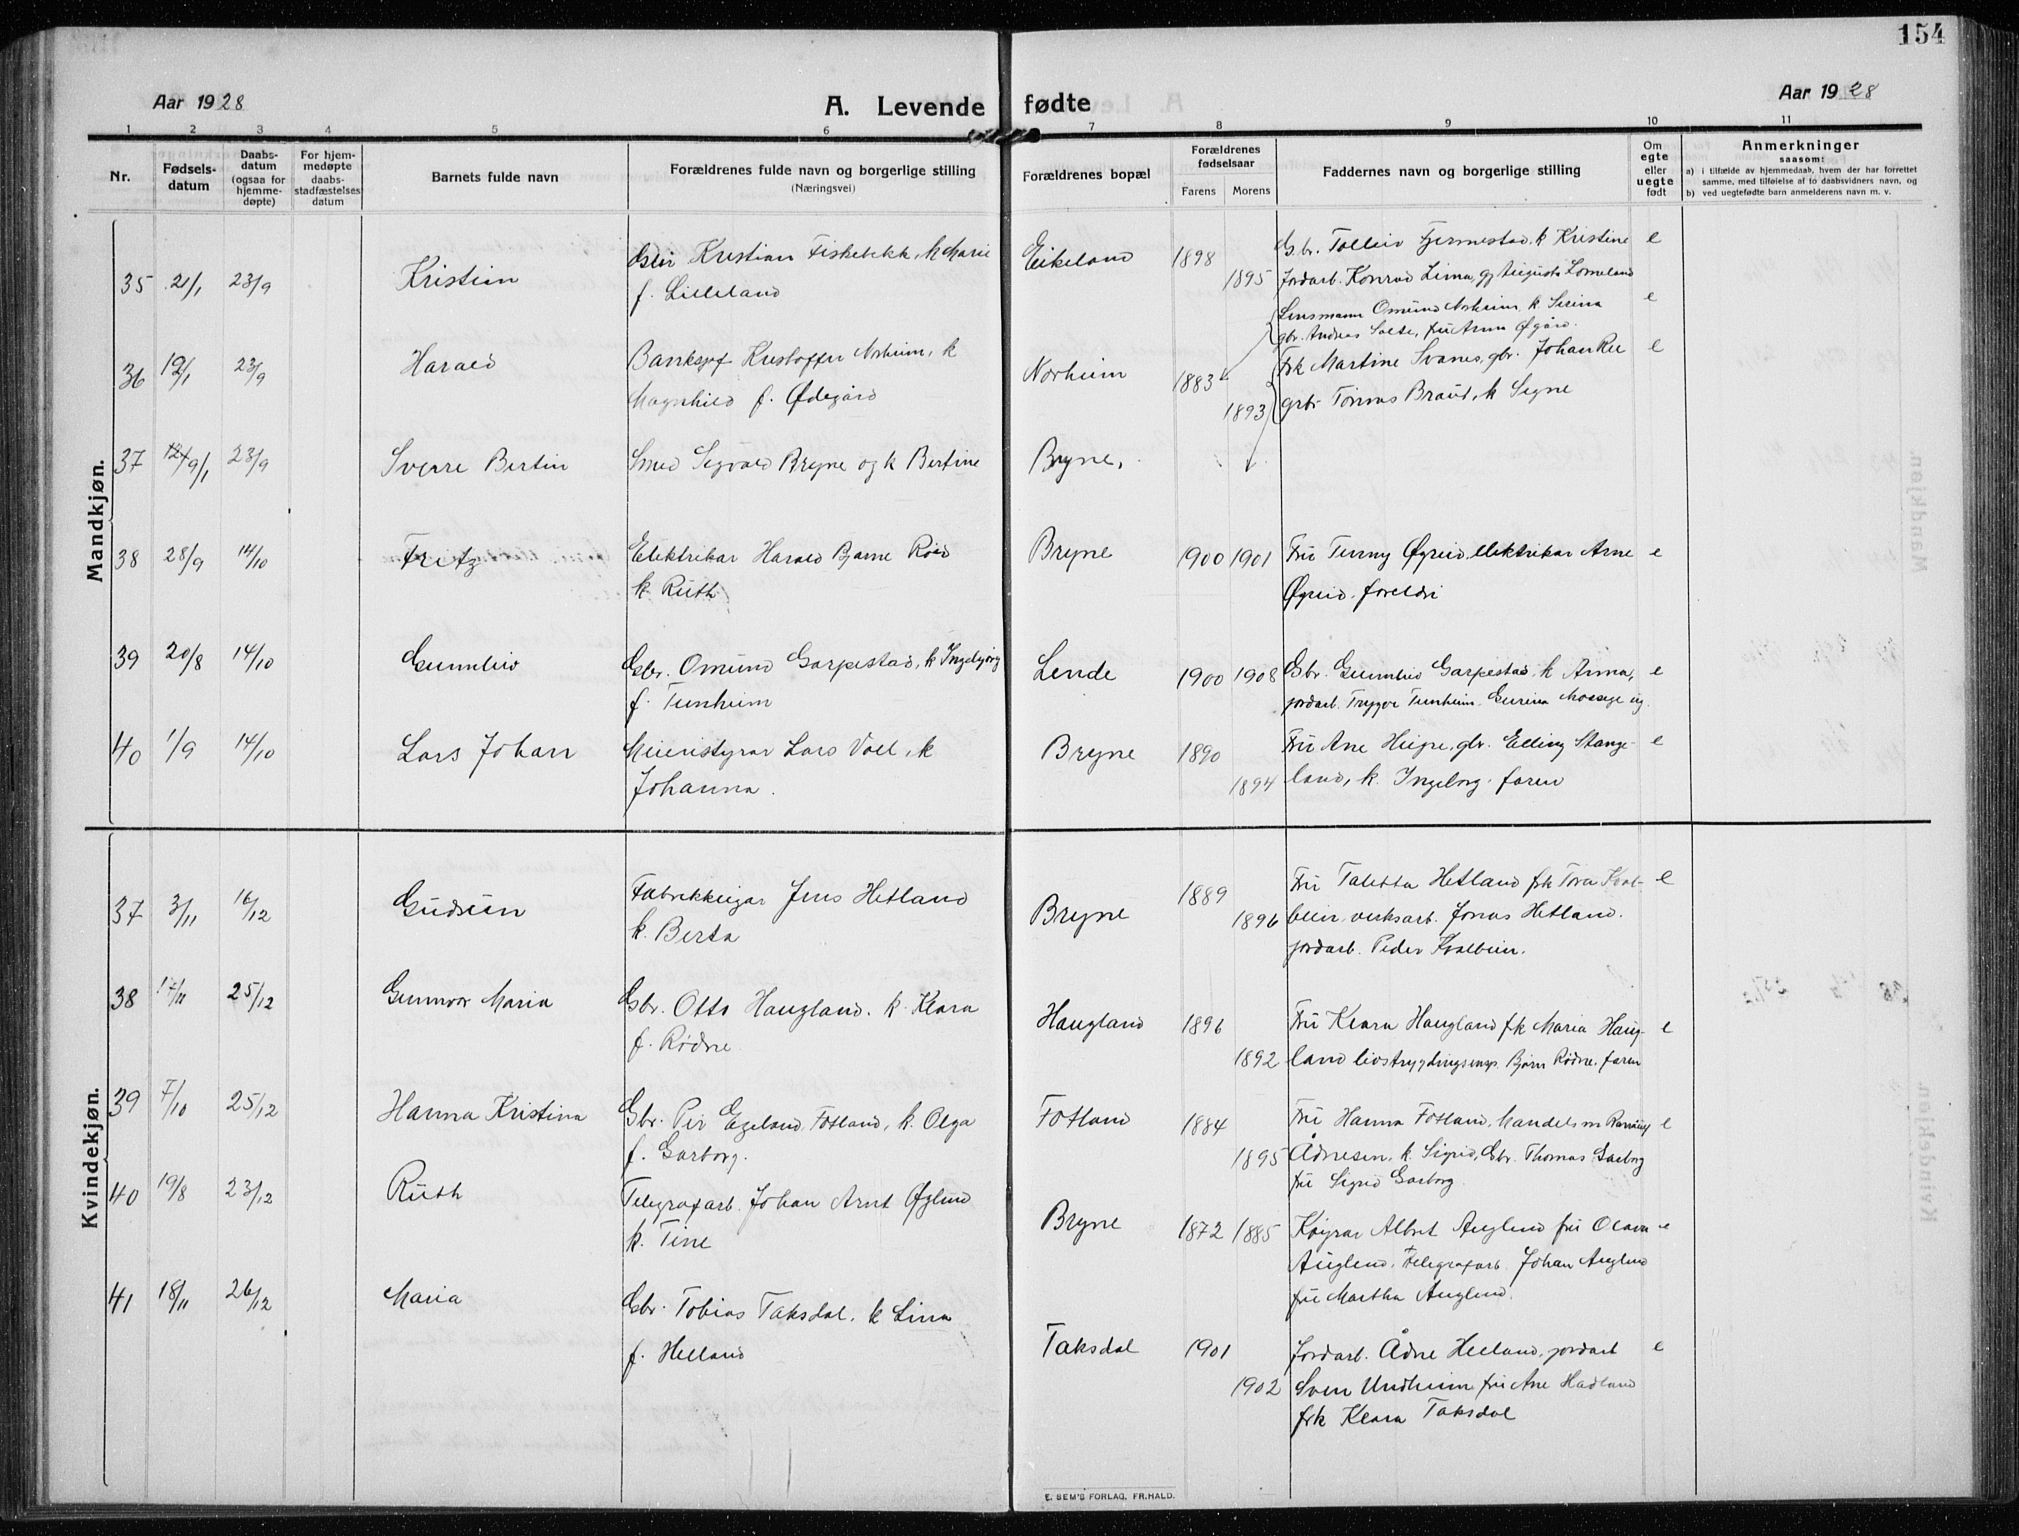 154
Aar 1928
A. Levende fødte
Aar 1928
1 2 3 4 5 6 7 8 9 10 11
Nr.
Fødsels-
datum
Daabs-
datum
(ogsaa for
hjemme-
døpte)
For hjem-
medøpte
daabs-
stadfæstelses
datum
Barnets fulde navn
Forældrenes fulde navn og borgerlige stilling
(Næringsvei)
Forældrenes bopæl
Forældrenes
fødselsaar
Farens Morens
Faddernes navn og borgerlige stilling
Om
egte
eller
uegte
født
Anmerkninger
saasom:
a) i tilfælde av hjemmedaab, hvem der har forrettet
samme, med tilføielse af to daabsvidners navn, og
b) ved uegtefødte barn anmelderens navn m. v.
Mandkjøn.
35 21/1 23/9 Kristian
Kristian Fiskebekk, k Marie
f. Lilleland
Eikeland 1898 1895
Gbr. Tolleiv k Kristine e
Jordarb. Konrad Lima, Lomeland
Lensmann Omund Norheim, k Serina e
gbr. Andreas Salte, fru Anna Øgård.
36 23/9 Harald
Kristoffer Norheim, k
Magnhild f. Ødegård
Norheim 1883 1893
Frk Martine Svanes, gbr. Johan e
Tomas Braut, k Signe
37 23/9 Sverre Bertin
Smed Sigvald Bryne og k Bertine
Bryne,
38 28/9 14/10 Fritz
Elektrikar Harald Bjarne
k. Ruth
Bryne 1900 1901
Fru Øgreid, elektrikar Arne e
Øgreid, foreldri
39 20/8 14/10 Gunnleiv
Gbr. Omund Garpestad, k Ingebjørg
f. Tunheim
Lende 1900 1908
Gbr. Gunnleiv Garpestad, k Anna, e
jordarb. Trygve Tunheim. Gurina Mossige ug.
40 1/9 14/10 Lars Johan
Meieristyrar Lars Voll, k
Johanna.
Bryne 1890 1894
Fru Ane gbr. Elling Stange- e
land, k. Ingeborg. faren
Kvindekjøn.
37 3/11 16/12 Gudrun
Fabrikkeigar Jens Hetland
k. Berta
Bryne 1889 1896
Fru Taletta Hetland frk Tora Kval- e
bein, verksarb. Jonas Hetland.
jordarb. Peder Kvalbein.
38 17/11 25/12 Gunnvor Maria
Gbr. Otto Haugland. k. Klara
f. Rødne
Haugland 1896 1892
Fru Klara Haugland frk Maria Haug- e
land Bjørn Rødne. faren
39 7/10 25/12 Hanna Kristina
Gbr. Per Egeland, Fotland, k. Olga
f. Garborg.
Fotland 1884 1895
Fru Hanna Fotland, handelsm e
Ådnesen, k. Sigrid, Gbr. Thomas Garborg
fru Sigrid Garborg.
40 19/8 23/12 Ruth
Telegrafarb. Johan Arnt
k. Tine
Bryne 1872 1885
Køyrar Albret Auglend fru Olava e
Auglend, Telegrafarb. Johan Auglend
fru Martha Auglend.
41 18/11 26/12 Maria
Gbr. Tobias Taksdal. k Lina
f. Helland
Taksdal 1901 1902
Jordarb. Ådne Helland, jordarb e
Sven Undheim fru Ane Hadland
frk Klara Taksdal
E. SEM'S FORLAG, FR.HALD.